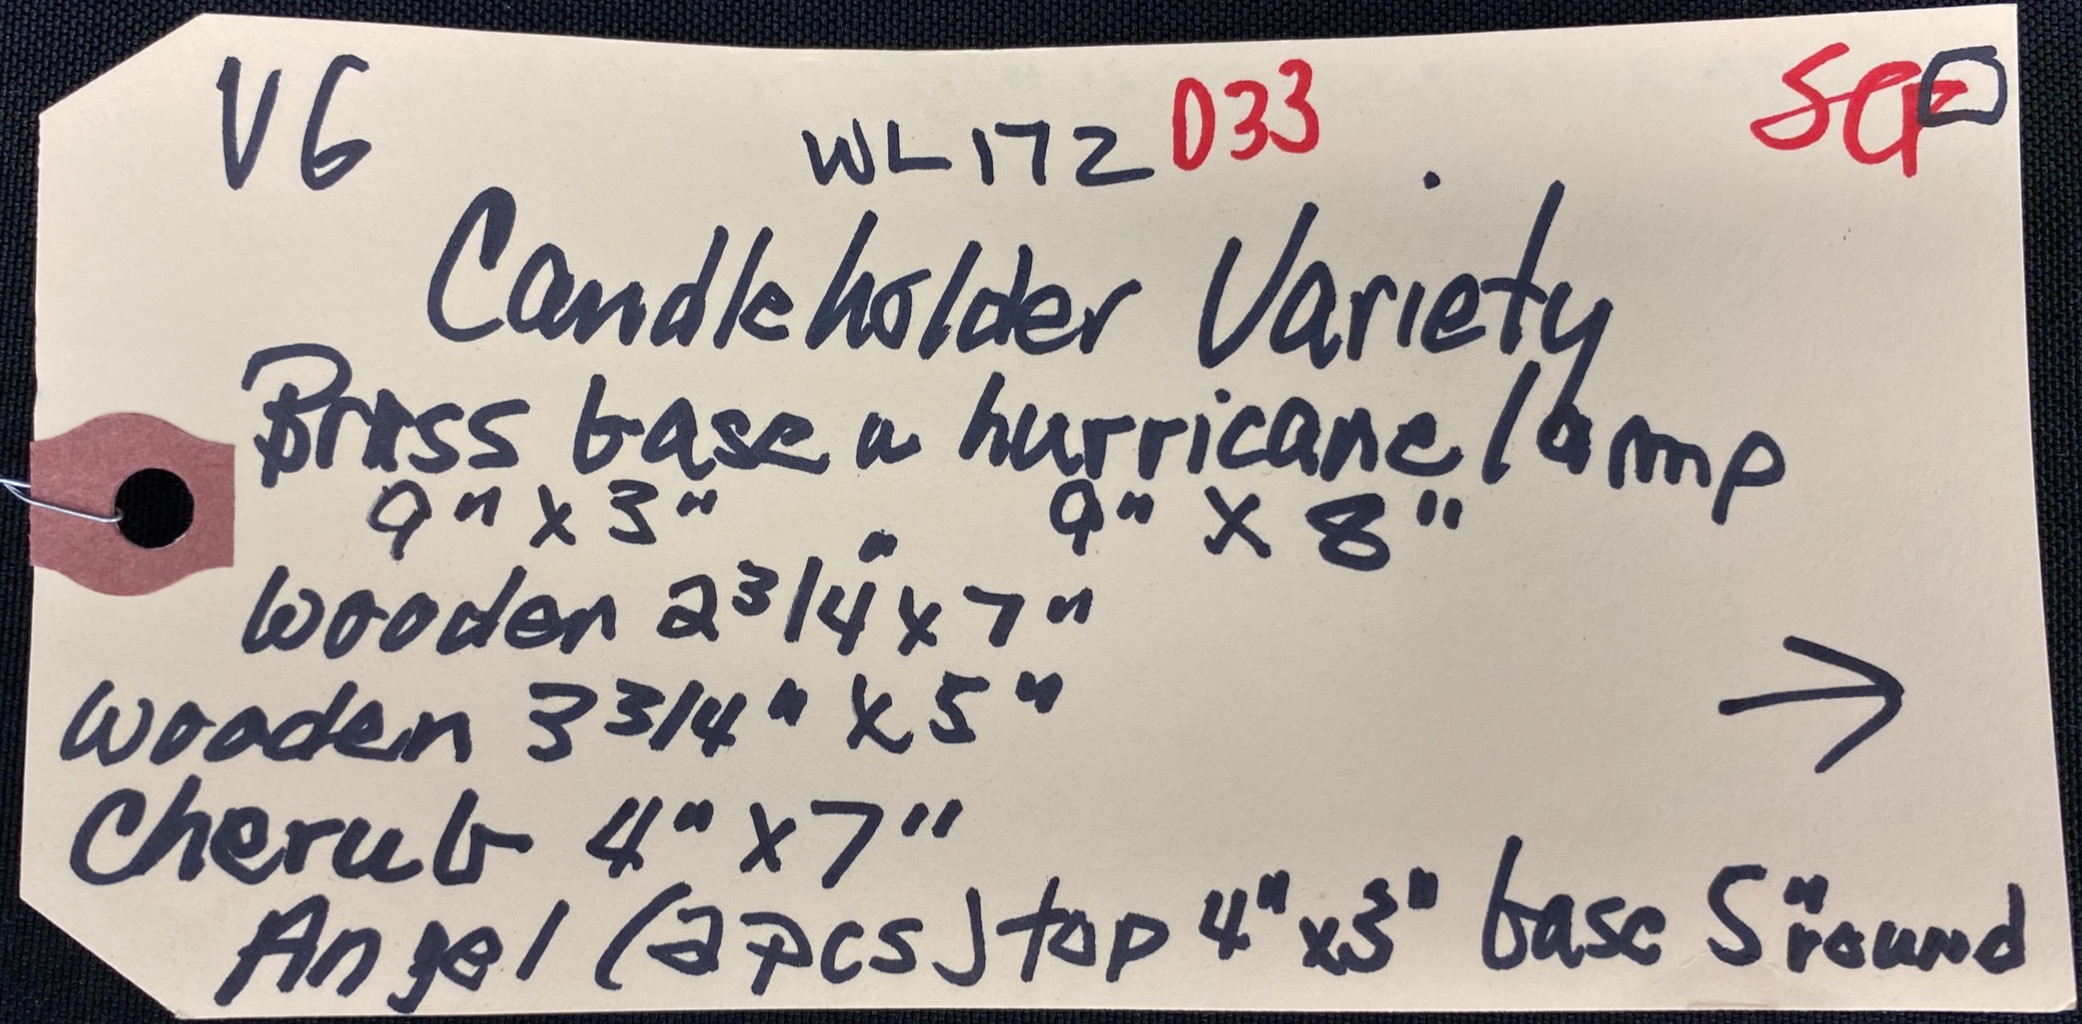 V6 WL172 D33 SCF
Candleholder Variety
Brass base a hurricane lamp
9" x 3" 9" X 8"
wooden 2 3/4" x 7"
wooden 3 3/4" x 5"
Cherub 4" x 7"
Angel (2pcs) top 4" x 3" base 5" round